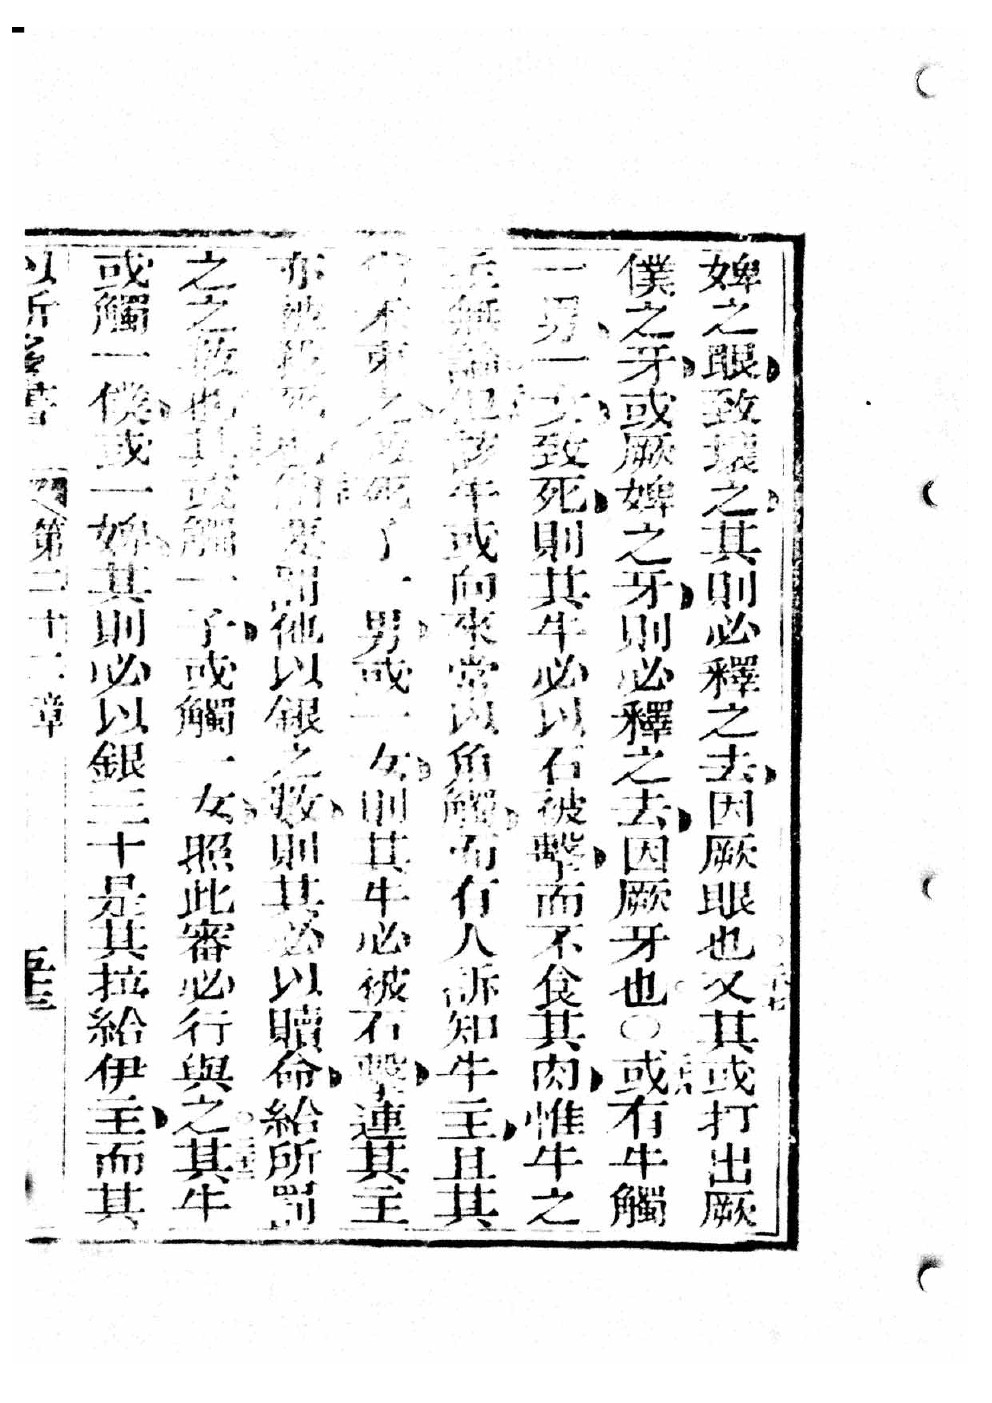 婢之眼致壞之其則必釋之去因厥眼也又其或打出厥
僕之牙或厥婢之牙則必釋之去因厥牙也○或有牛觸
一男一女致死則其牛必以石被擊而不食其肉惟牛之
主無論也該牛或向來常以角觸而有人訴知牛主且其
不束之致死了一男或一女則其牛必被石擊連其主
亦被死罰他以銀之數則其必以贖命給所罰
之之數也其或觸一子或觸一女照此審必行與之其牛
或觸一僕或一婢其則必以銀三十是其拉給伊主而其
第二十一章